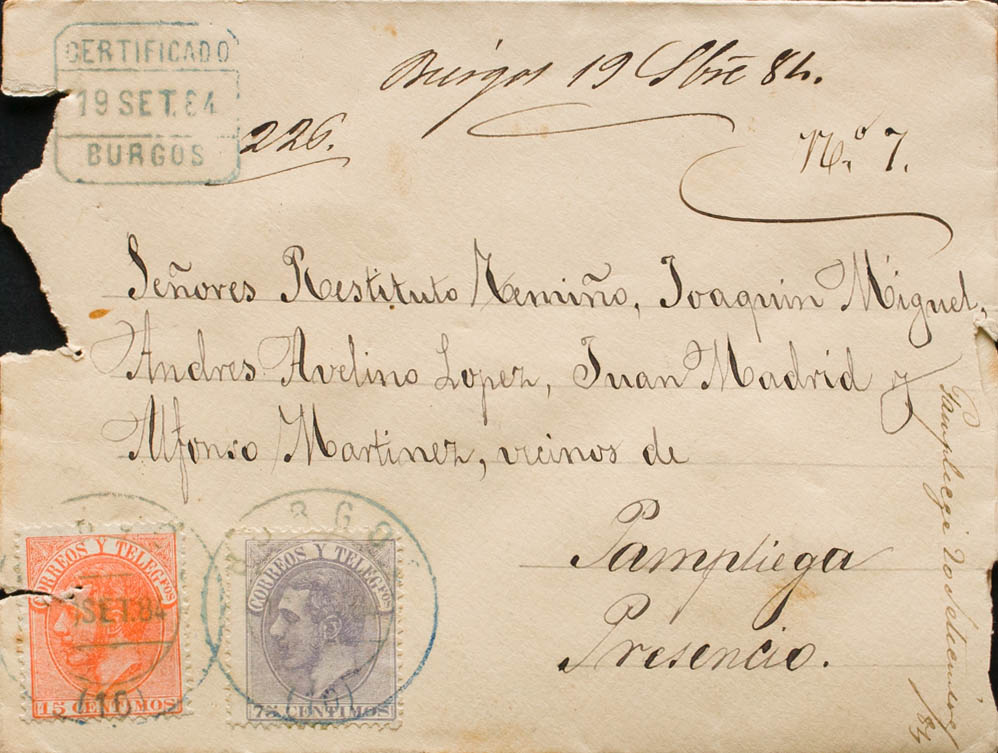 CERTIFICADO
19 SET.84
BURGOS
Burgos 19 Sbre 84.
226.
N.º 7.
Señores Restituto Temiño, Joaquin Miguel,
Andres Avelino Lopez, Juan Madrid y
Alfonso Martinez, vecinos de
Pampliega
Presencio.
Pampliega 20 Setiembre 84
CORREOS Y TELEGFOS
SET.84
15 CENTIMOS
(10)
BURGOS
CORREOS Y TELEGFOS
75 CENTIMOS